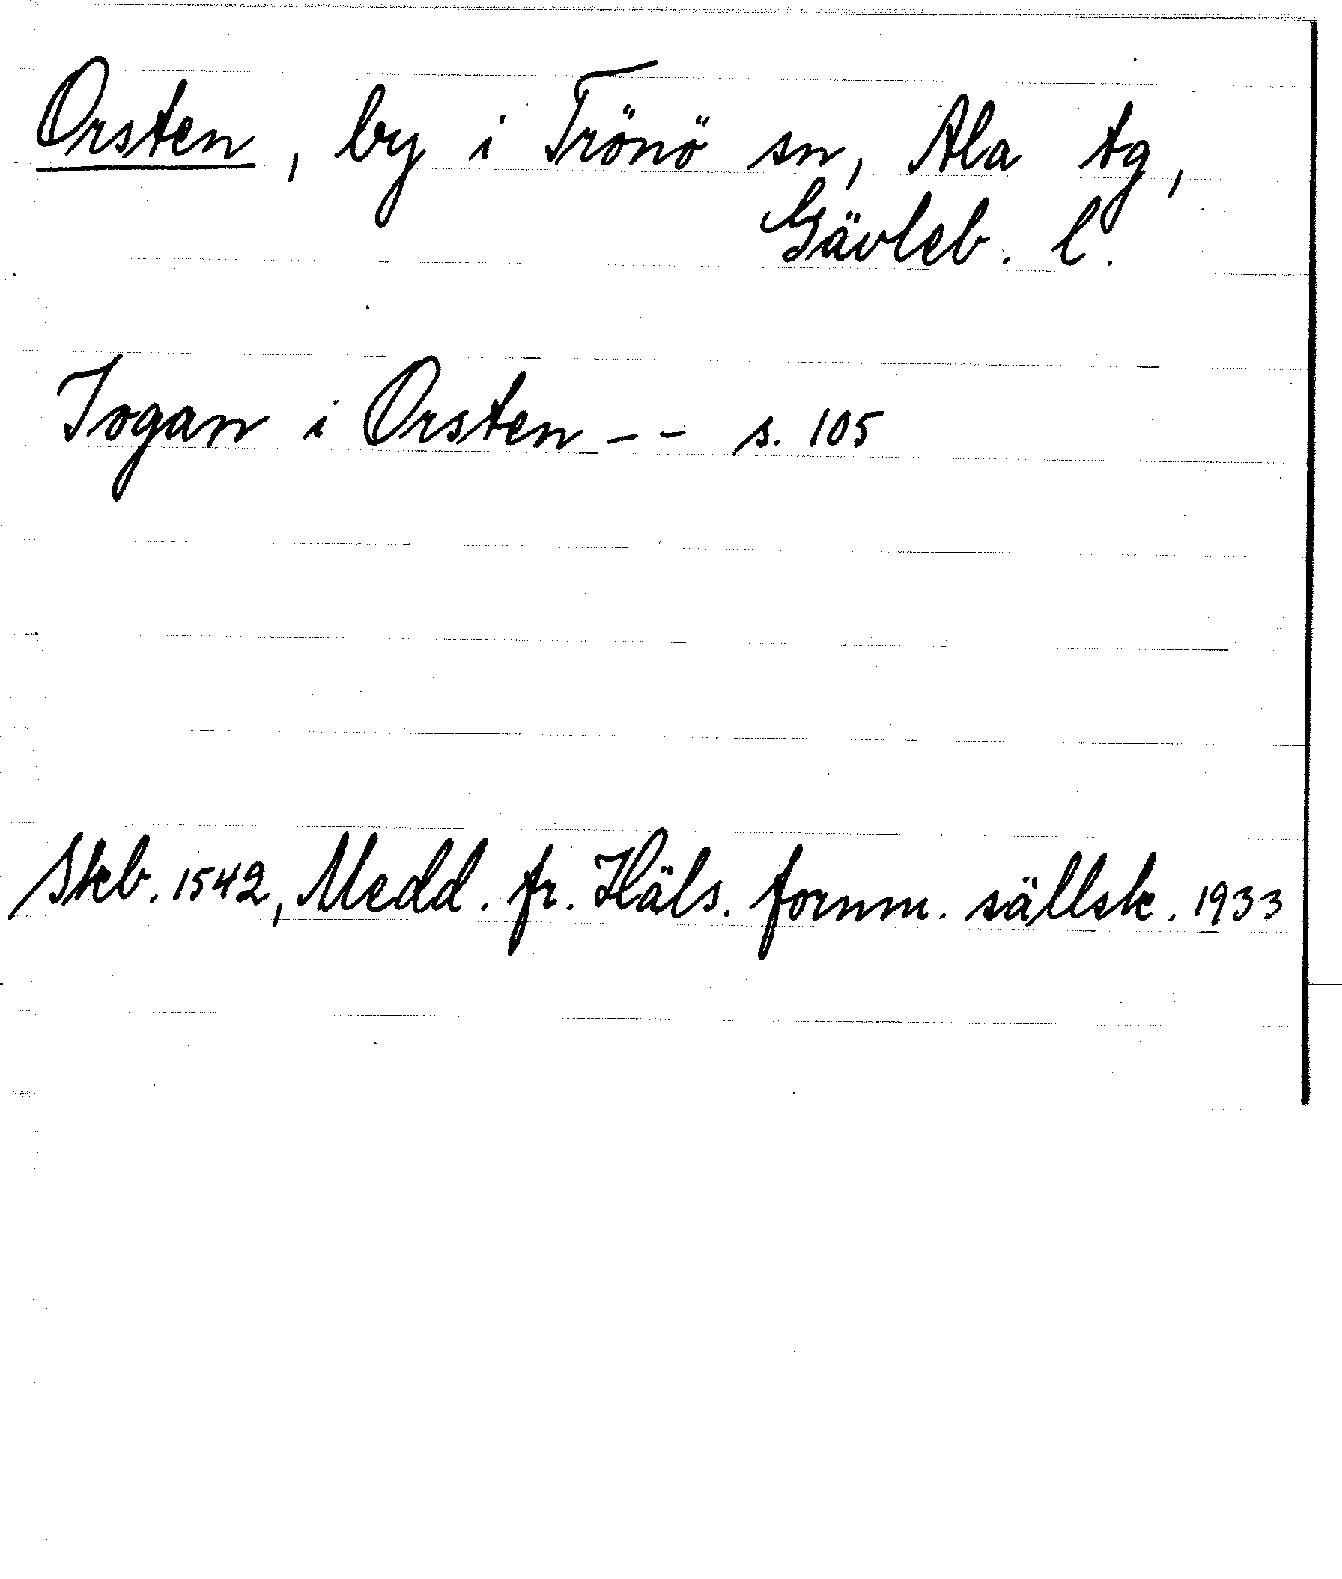 Orsten, by i Trönö sn, Ala tg,
Gävleb. l.
Iogan i Orsten -- s. 105
Skb. 1542, Medd. fr. Häls. fornm. sällsk. 1933